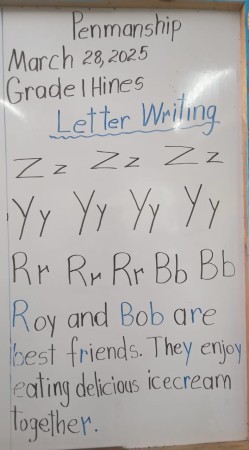 Penmanship
March 28, 2025
Grade 1 Hines
Letter Writing
Zz Zz Zz
Yy Yy Yy Yy
Rr Rr Rr Bb Bb
Roy and Bob are
best friends. They enjoy
eating delicious icecream
together.